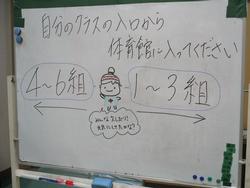 自分のクラスの入口から
体育館に入ってください
4～6組
1～3組